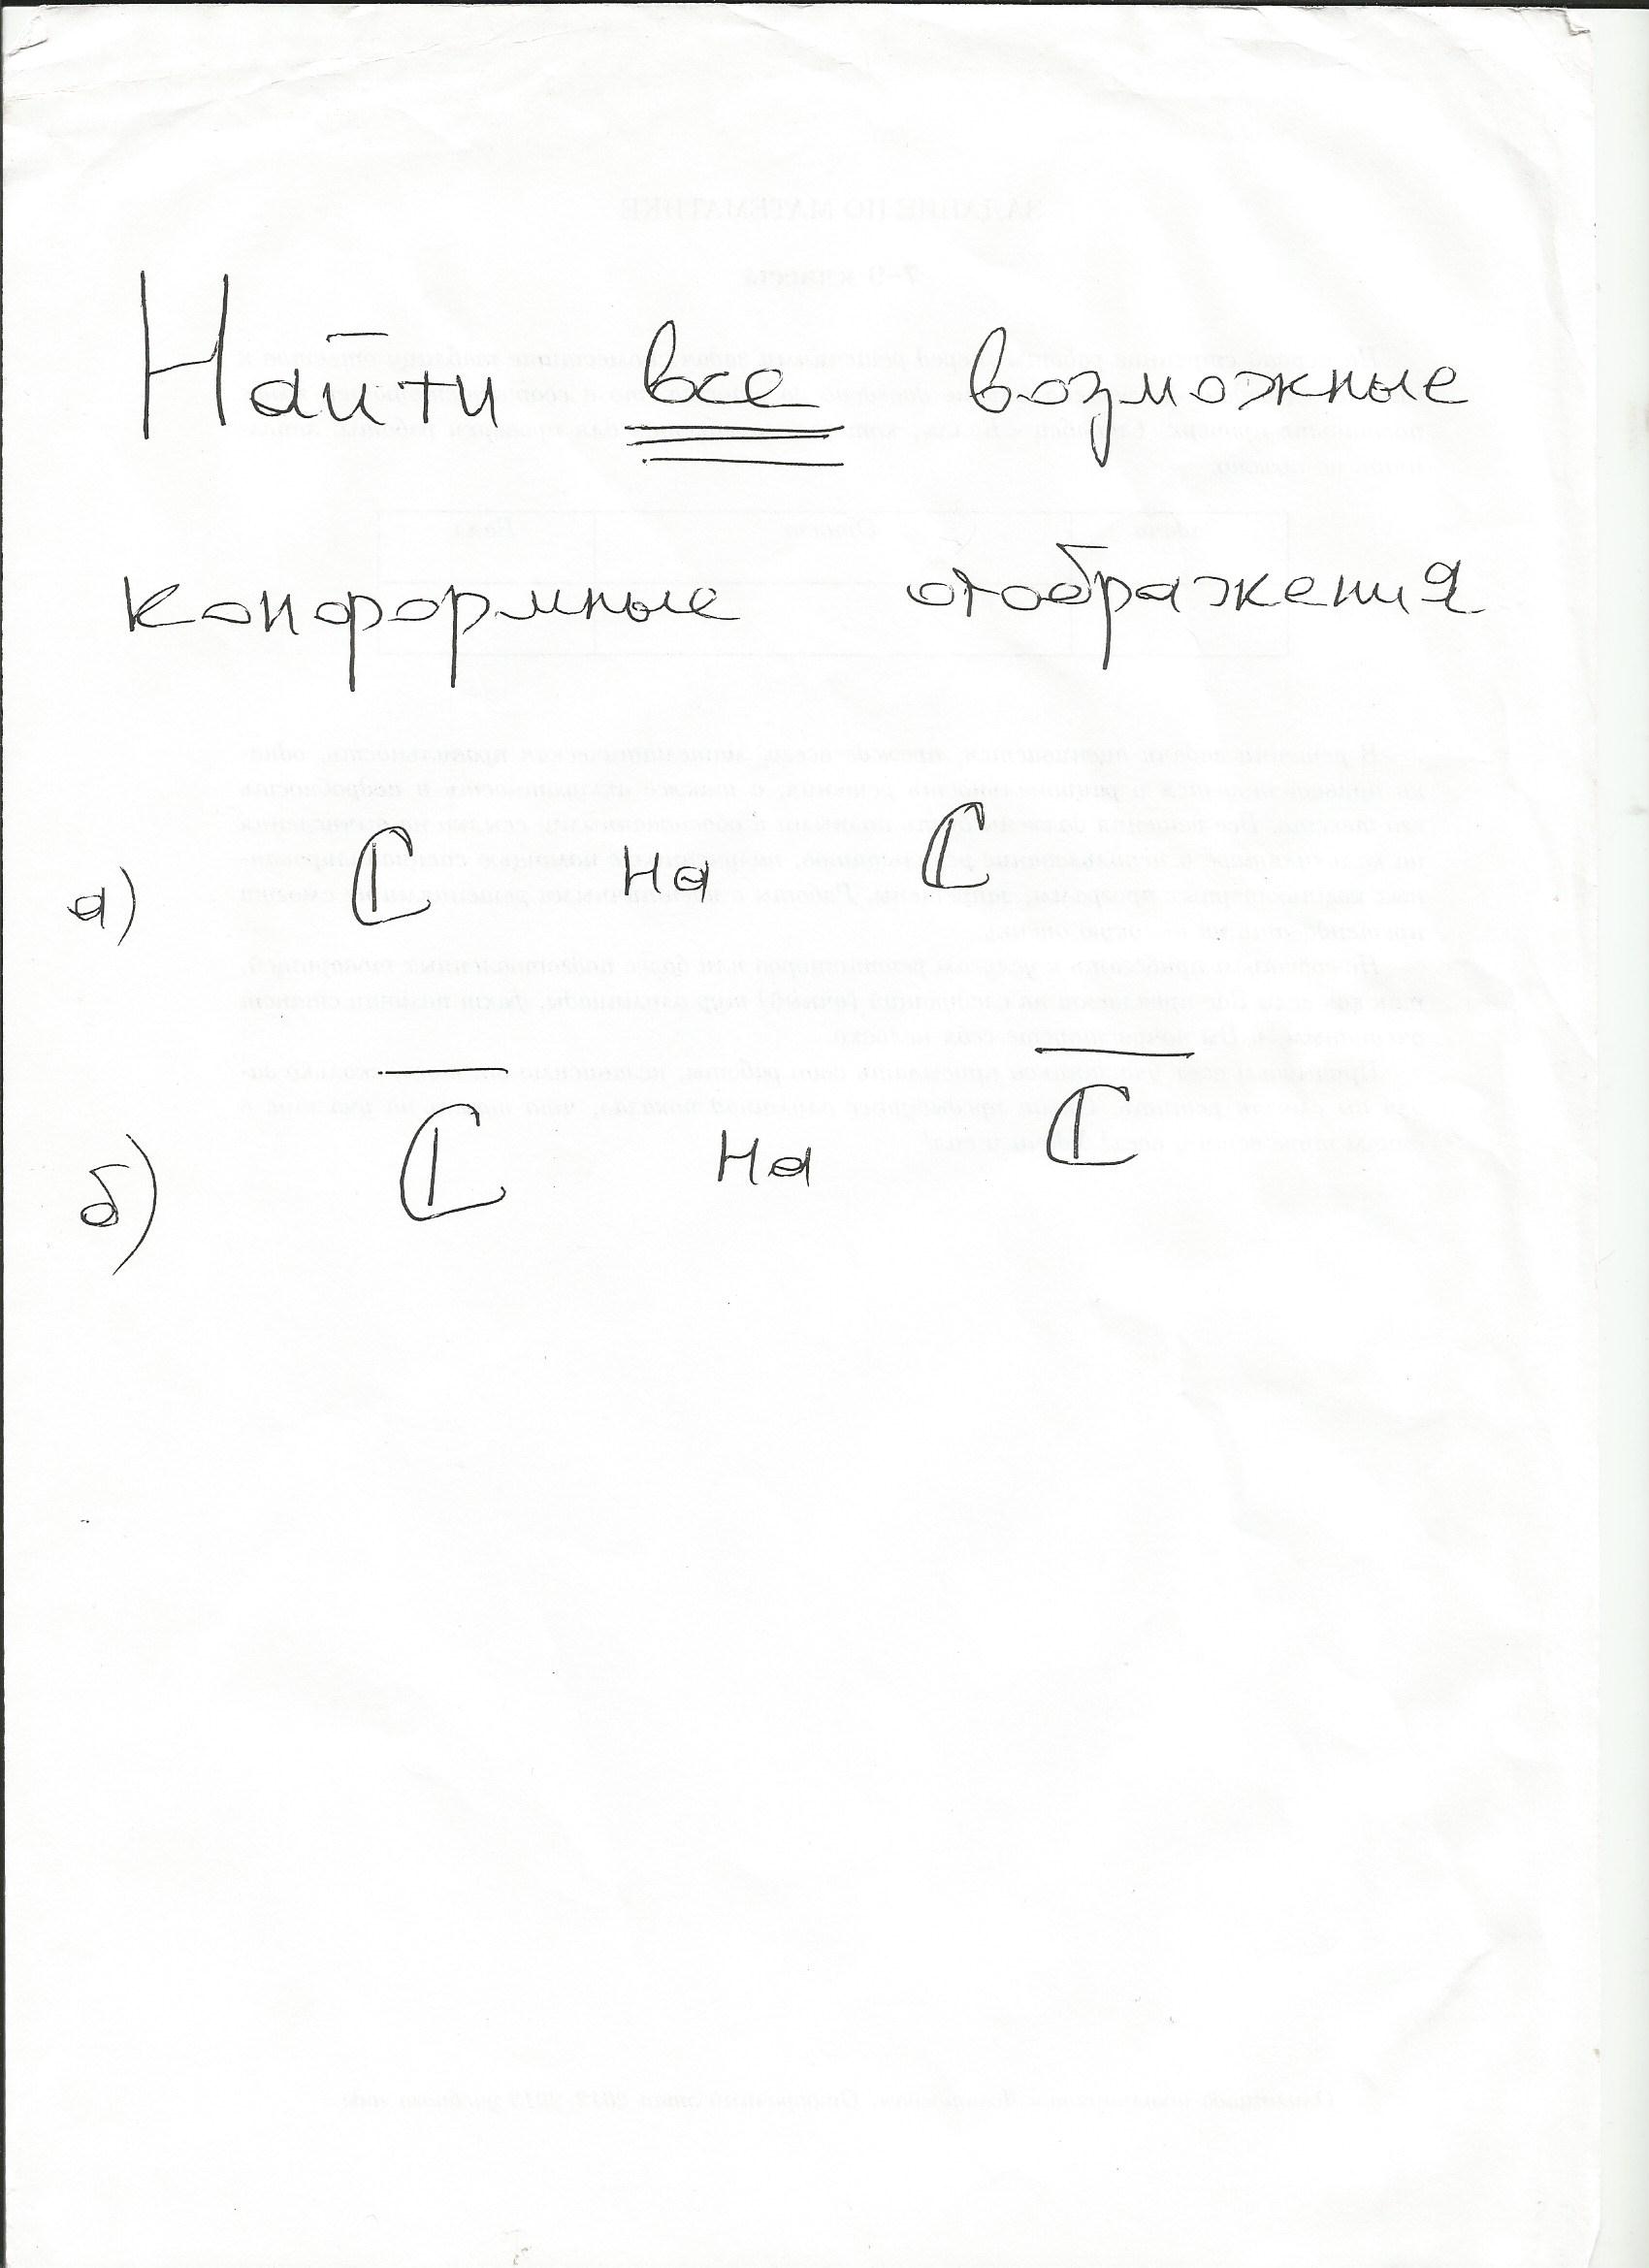 Найти все возможные
конформные отображения
а) ℂ на ℂ
б) ℂ̅ на ℂ̅